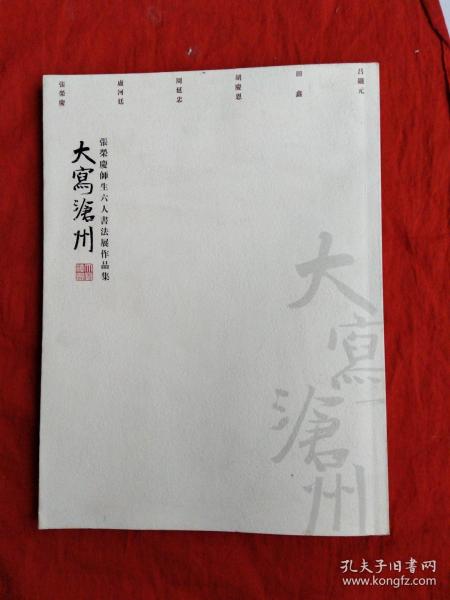 張榮慶
盧河廷
周延忠
胡慶恩
田鑫
呂鐵元
張榮慶師生六人書法展作品集
大寫滄州
大寫滄州
孔夫子旧书网
www.kongfz.com